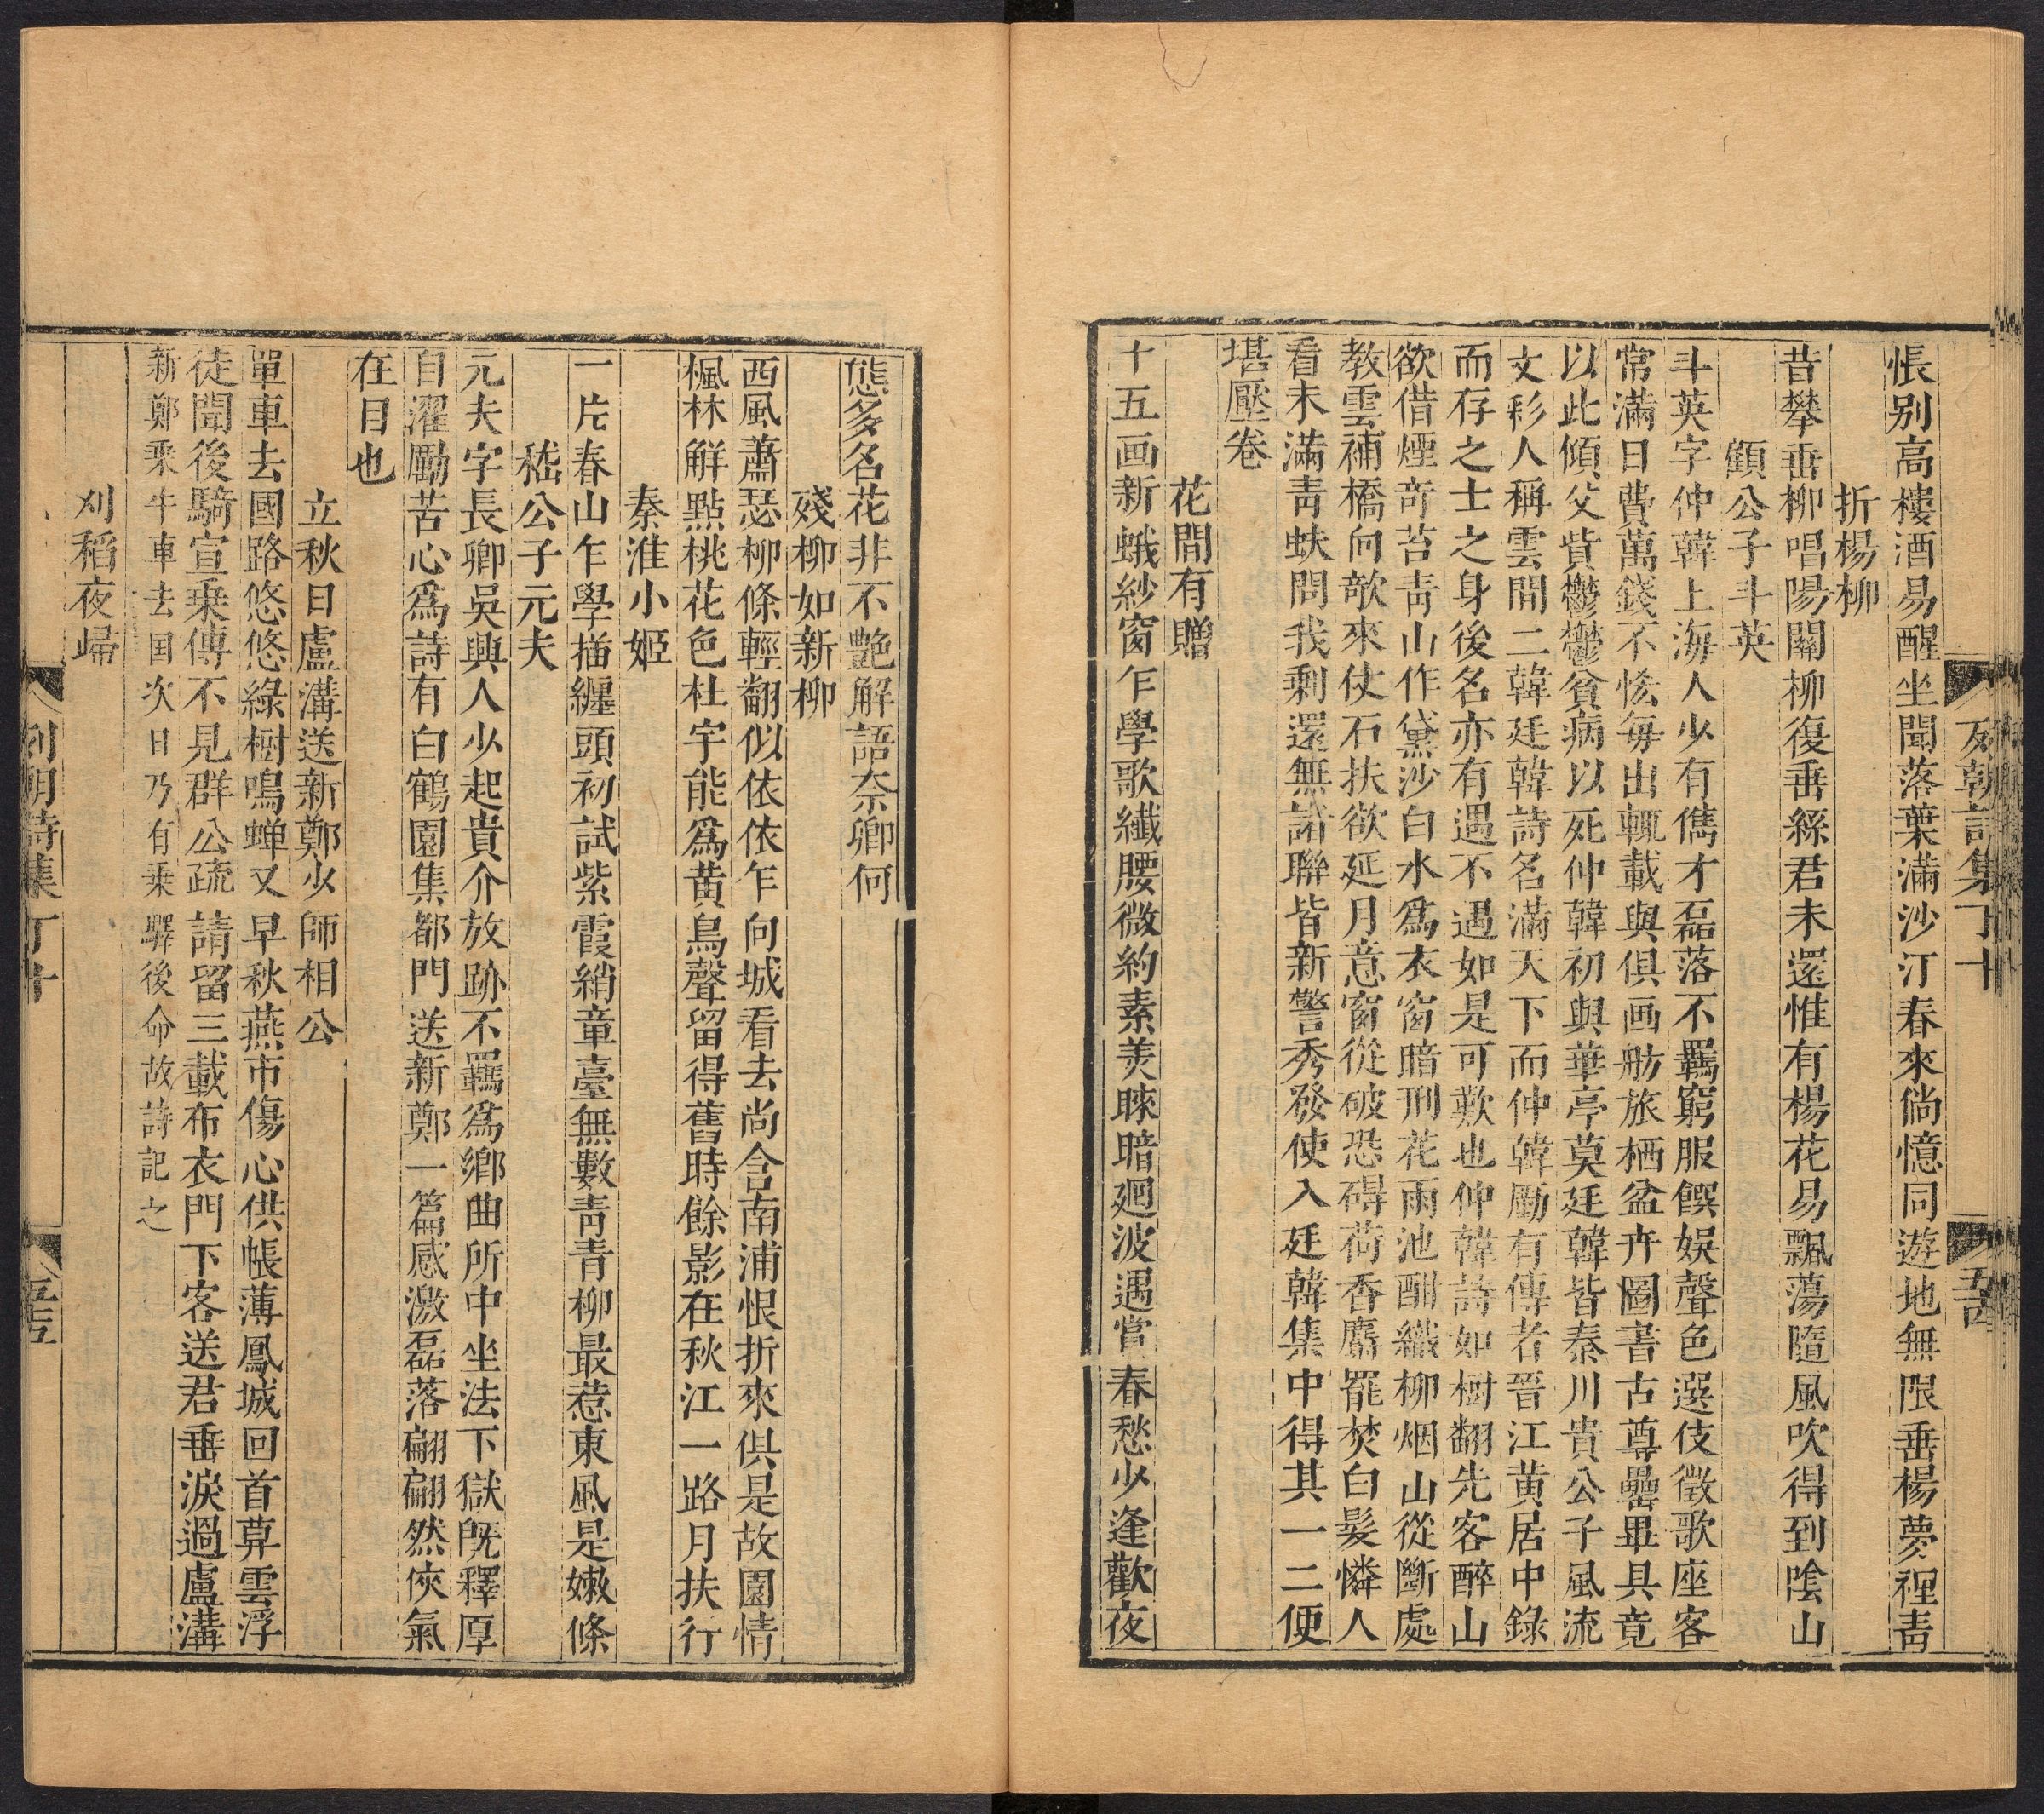 悵别高樓酒易醒坐聞落葉滿沙汀春來倘憶同遊地無限垂楊夢裡靑
折楊柳
昔攀垂柳唱陽關柳復垂絲君未還惟有楊花易飄蕩隨風吹得到陰山
顧公子斗英
斗英字仲韓上海人少有儁才磊落不羈窮服饌娛聲色選伎徵歌座客
常滿日費萬錢不恡每出輒載與俱画舫旅栖盆卉圖書古尊罍畢具竟
以此傾父貲鬱鬱貧病以死仲韓初與華亭莫廷韓皆秦川貴公子風流
文彩人稱雲間二韓廷韓詩名滿天下而仲韓勵有傳者晉江黄居中錄
而存之士之身後名亦有遇不遇如是可歎也仲韓詩如樹翻先客醉山
欲借煙竒苔靑山作黛沙白水爲衣窗暗刑花雨池酣織柳烟山從斷處
教雲補橋向欹來仗石扶欲延月意窗從破恐碍荷香麝罷焚白髮憐人
看未滿靑蚨問我剩還無諸聯皆新警秀發使入廷韓集中得其一二便
堪壓卷
花間有贈
十五画新蛾紗窗乍學歌纖腰微約素美睞暗廻波遇當春愁少逢歡夜
列朝詩集丁十
態多名花非不艷解語奈卿何
殘柳如新柳
西風蕭瑟柳條輕翻似依依乍向城看去尚含南浦恨折來俱是故園情
楓林觧點桃花色杜宇能爲黄鳥聲留得舊時餘影在秋江一路月扶行
秦淮小姬
一片春山乍學描纏頭初試紫霞綃章臺無數靑青柳最惹東風是嫩條
嵇公子元夫
元夫字長卿吳興人少起貴介放跡不羈爲鄉曲所中坐法下獄旣釋厚
自濯勵苦心爲詩有白鶴園集都門送新鄭一篇感激磊落翩翩然俠氣
在目也
立秋日盧溝送新鄭少師相公
單車去國路悠悠綠樹鳴蟬又早秋燕市傷心供帳薄鳳城回首莽雲浮
徒聞後騎宣乗傳不見群公疏請留三載布衣門下客送君垂淚過盧溝
新鄭乘牛車去国次日乃有乗驛後命故詩記之
刈稻夜歸
列朝詩集丁十